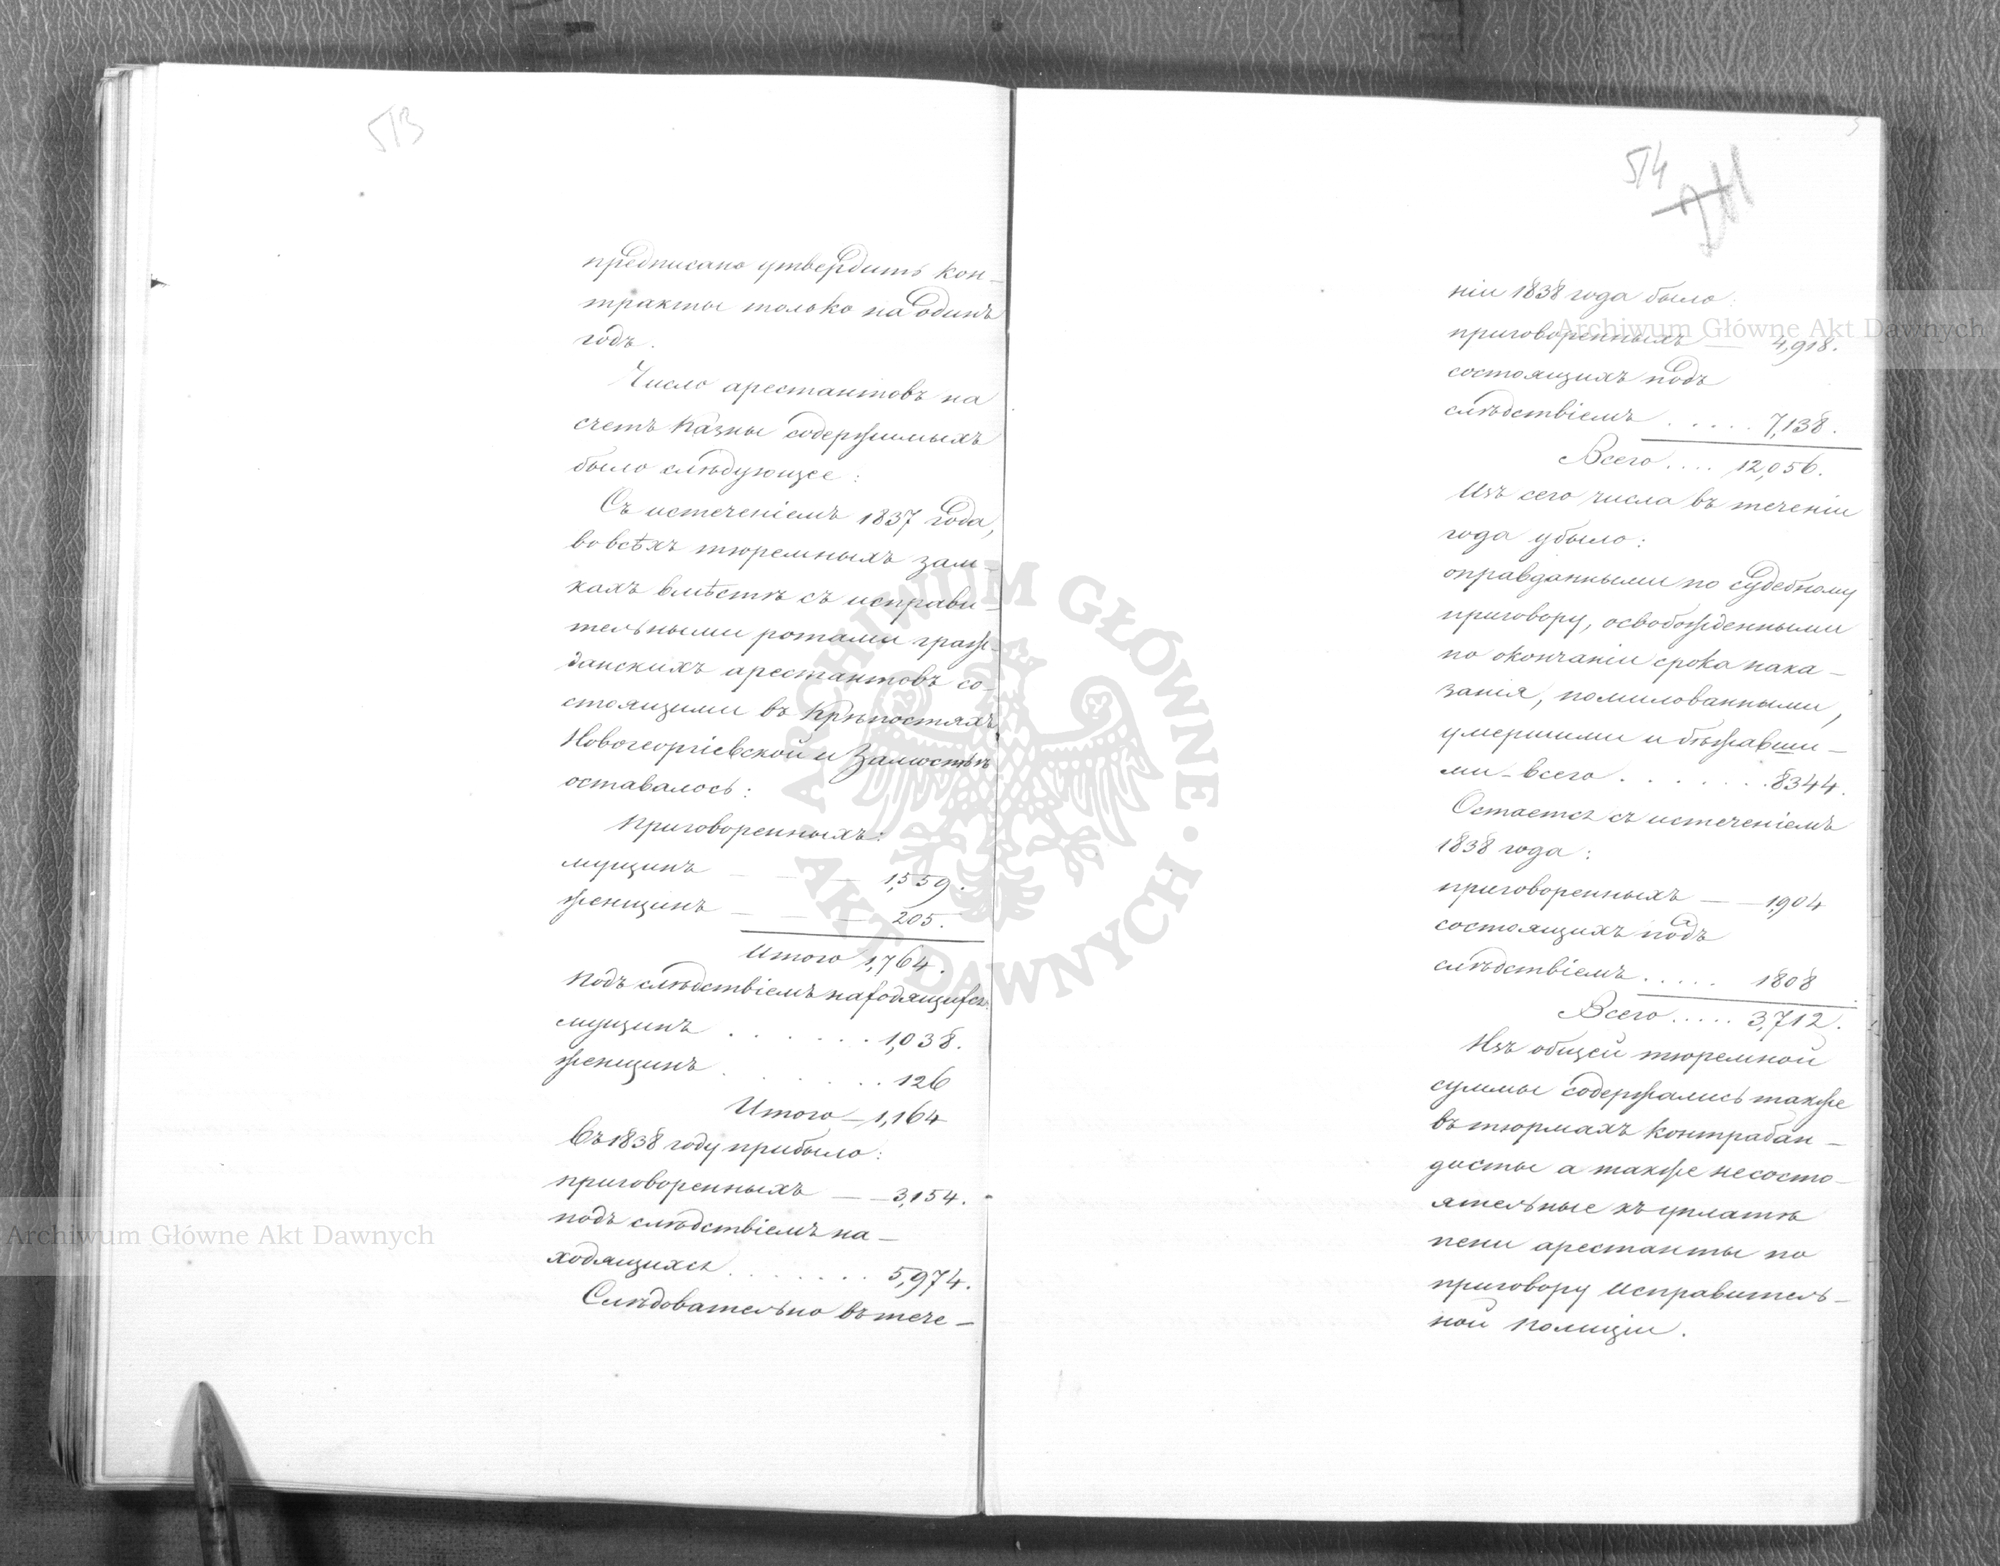 513
предписано утвердить кон-
тракты только на одинъ
годъ.
Число арестантовъ на
счетъ Казны содержимыхъ
было слѣдующее:
Съ истеченіемъ 1837 года,
во всѣхъ тюремныхъ зам-
кахъ вмѣстѣ съ исправи-
тельными ротами граж-
данскихъ арестантовъ со-
стоящими въ Крѣпостяхъ
Новогеоргіевской и Замостьѣ
оставалось:
Приговоренныхъ:
мущинъ — — — 1,559.
женщинъ — — — 205.
Итого 1,764.
Подъ слѣдствіемъ находящихся:
мущинъ . . . . . . . 1,038.
женщинъ . . . . . . . 126
Итого — 1,164
Въ 1838 году прибыло:
приговоренныхъ — — 3,154.
подъ слѣдствіемъ на-
ходящихся . . . . . . . 5,974.
Слѣдовательно въ тече-
514
ніи 1838 года было:
приговоренныхъ — 4,918.
состоящихъ подъ
слѣдствіемъ . . . . . 7,138.
Всего .... 12,056.
Изъ сего числа въ теченіи
года убыло:
оправданными по судебному
приговору, освобожденными
по окончаніи срока нака-
занія, помилованными,
умершими и бѣжавши-
ми - всего . . . . . . . 8344.
Остается съ истеченіемъ
1838 года:
приговоренныхъ — — 1,904
состоящихъ подъ
слѣдствіемъ ..... 1808
Всего ..... 3,712.
Изъ общей тюремной
суммы содержались также
въ тюрмахъ контрабан-
дисты а также несосто-
ятельные къ уплатѣ
пени арестанты по
приговору Исправитель-
ной Полиціи.
Archiwum Główne Akt Dawnych
Archiwum Główne Akt Dawnych
ARCHIWUM GŁÓWNE · AKT DAWNYCH ·